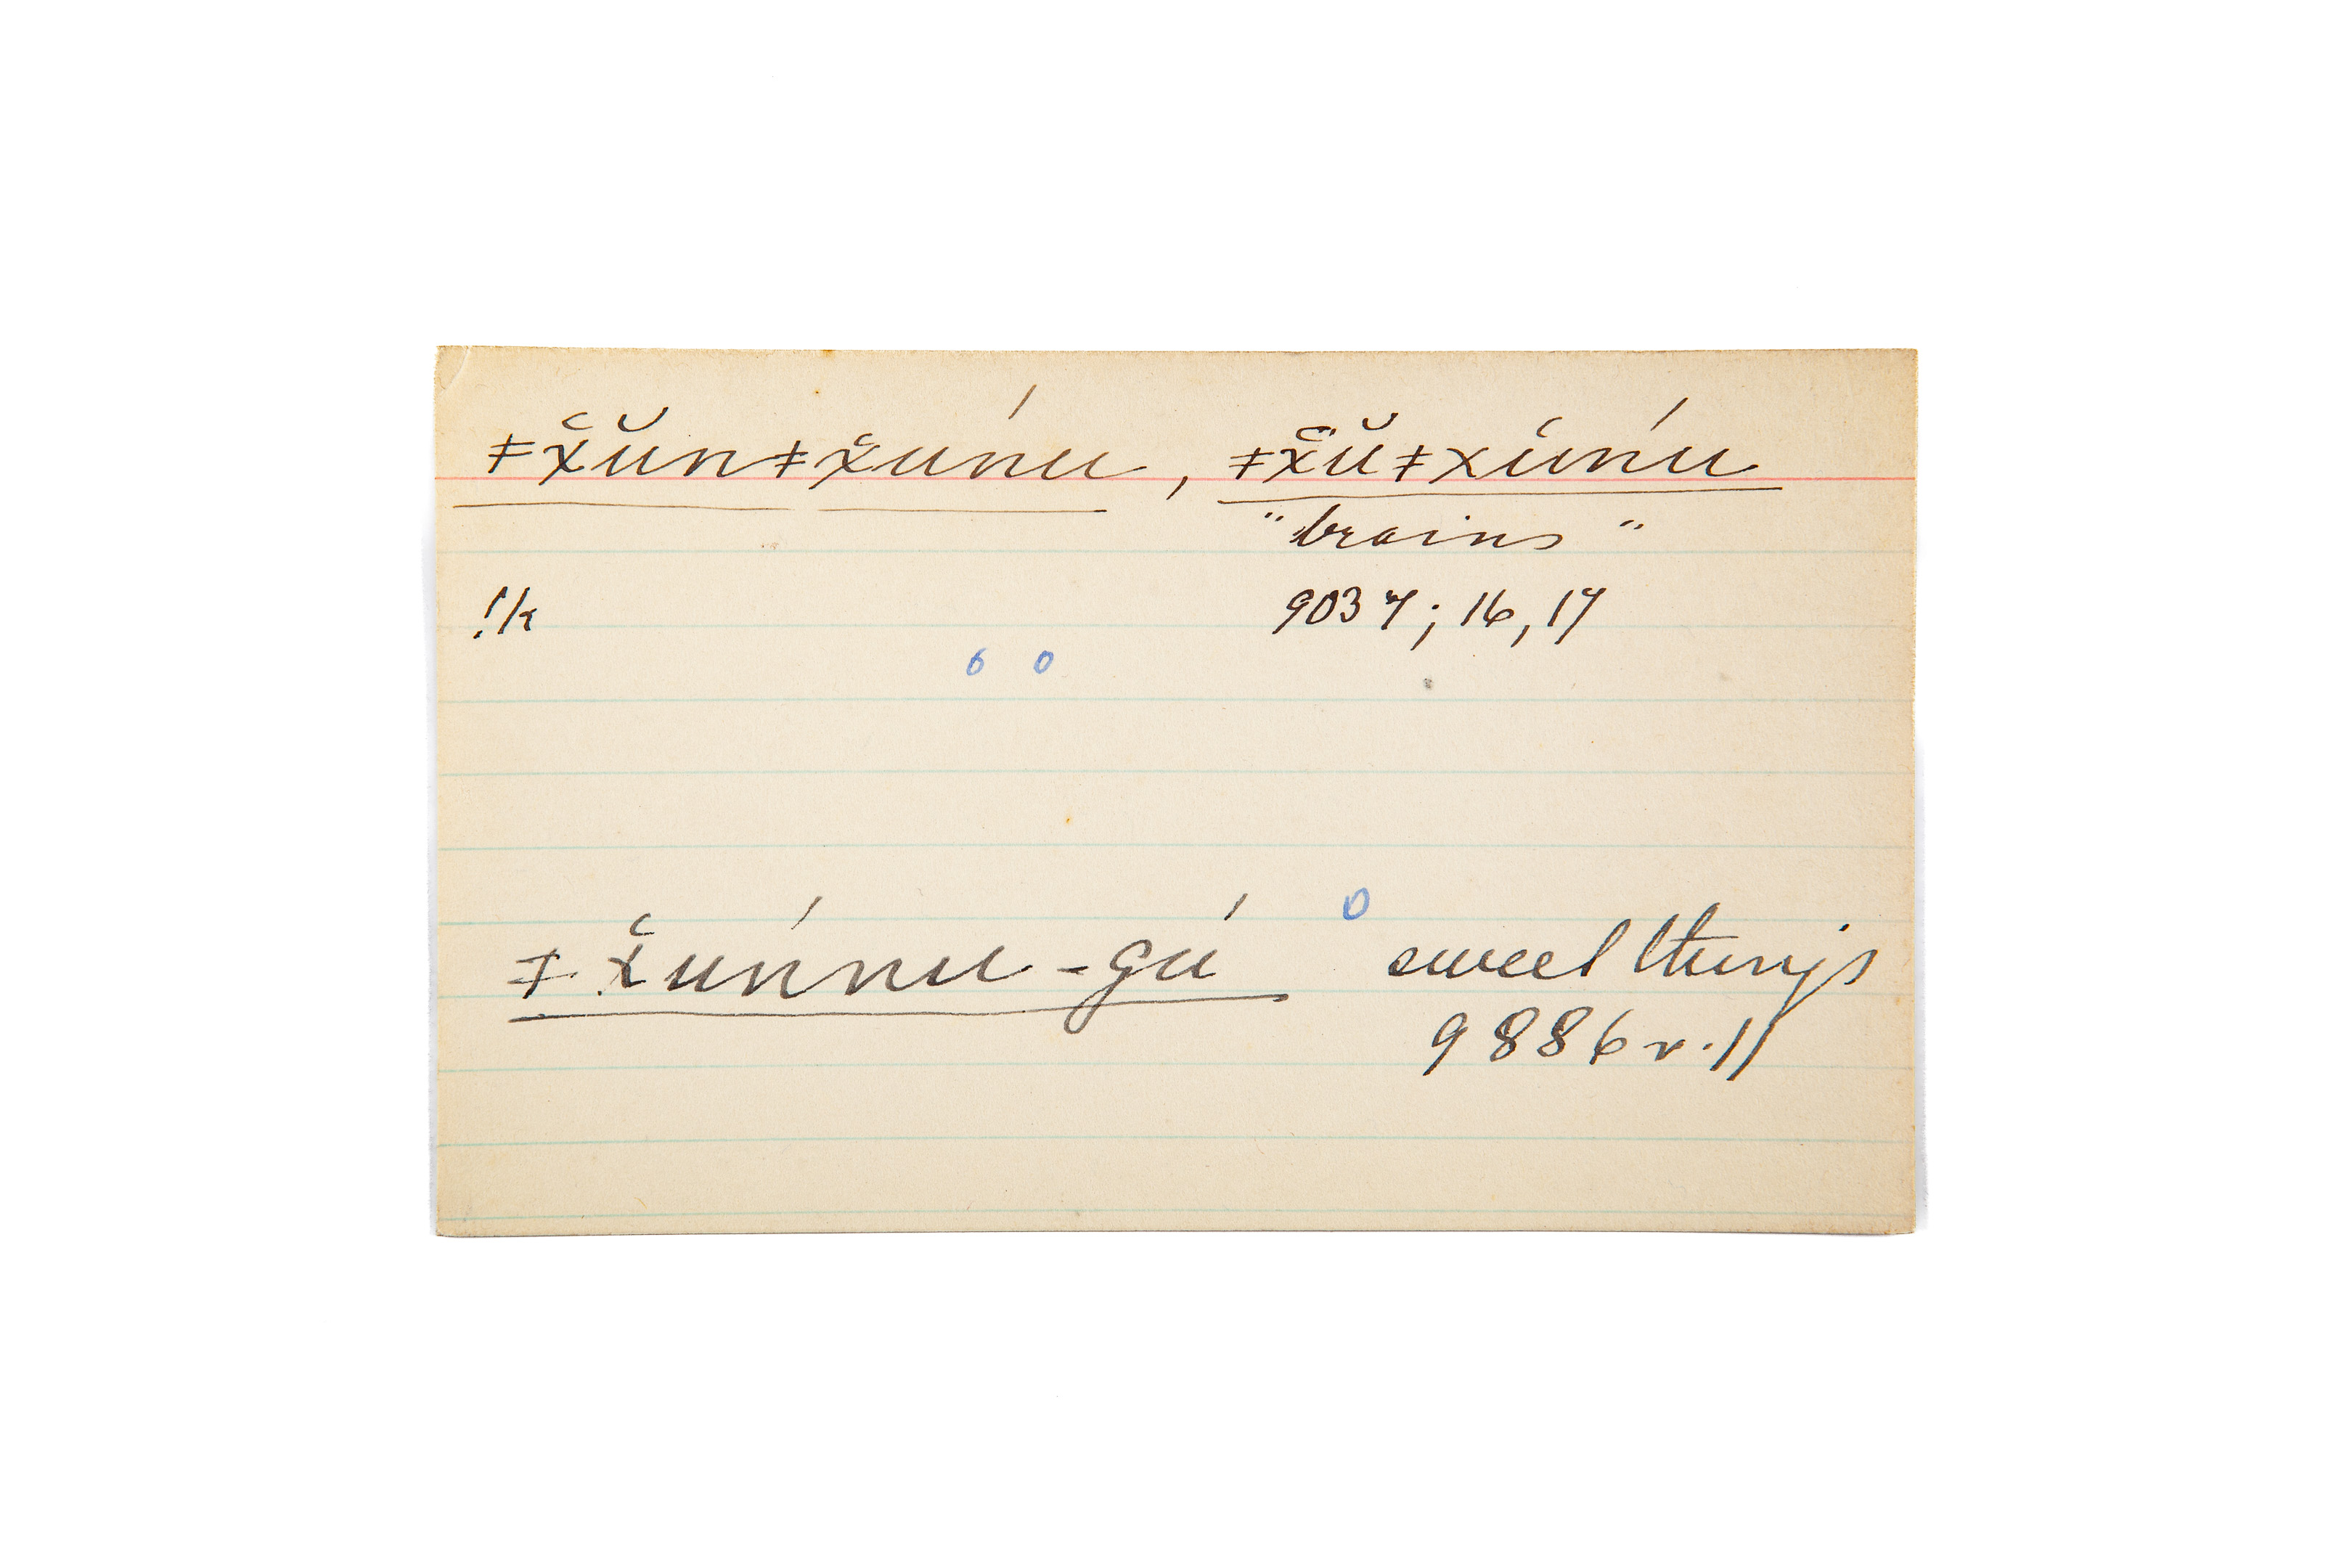 ǂx̌ŭnǂx̌unú, ǂx̌ŭǂxúnú
"brains"
!k 9037; 16, 17
6 0
ǂx̌uńnu-gú 0 sweet things
9886 r. 11